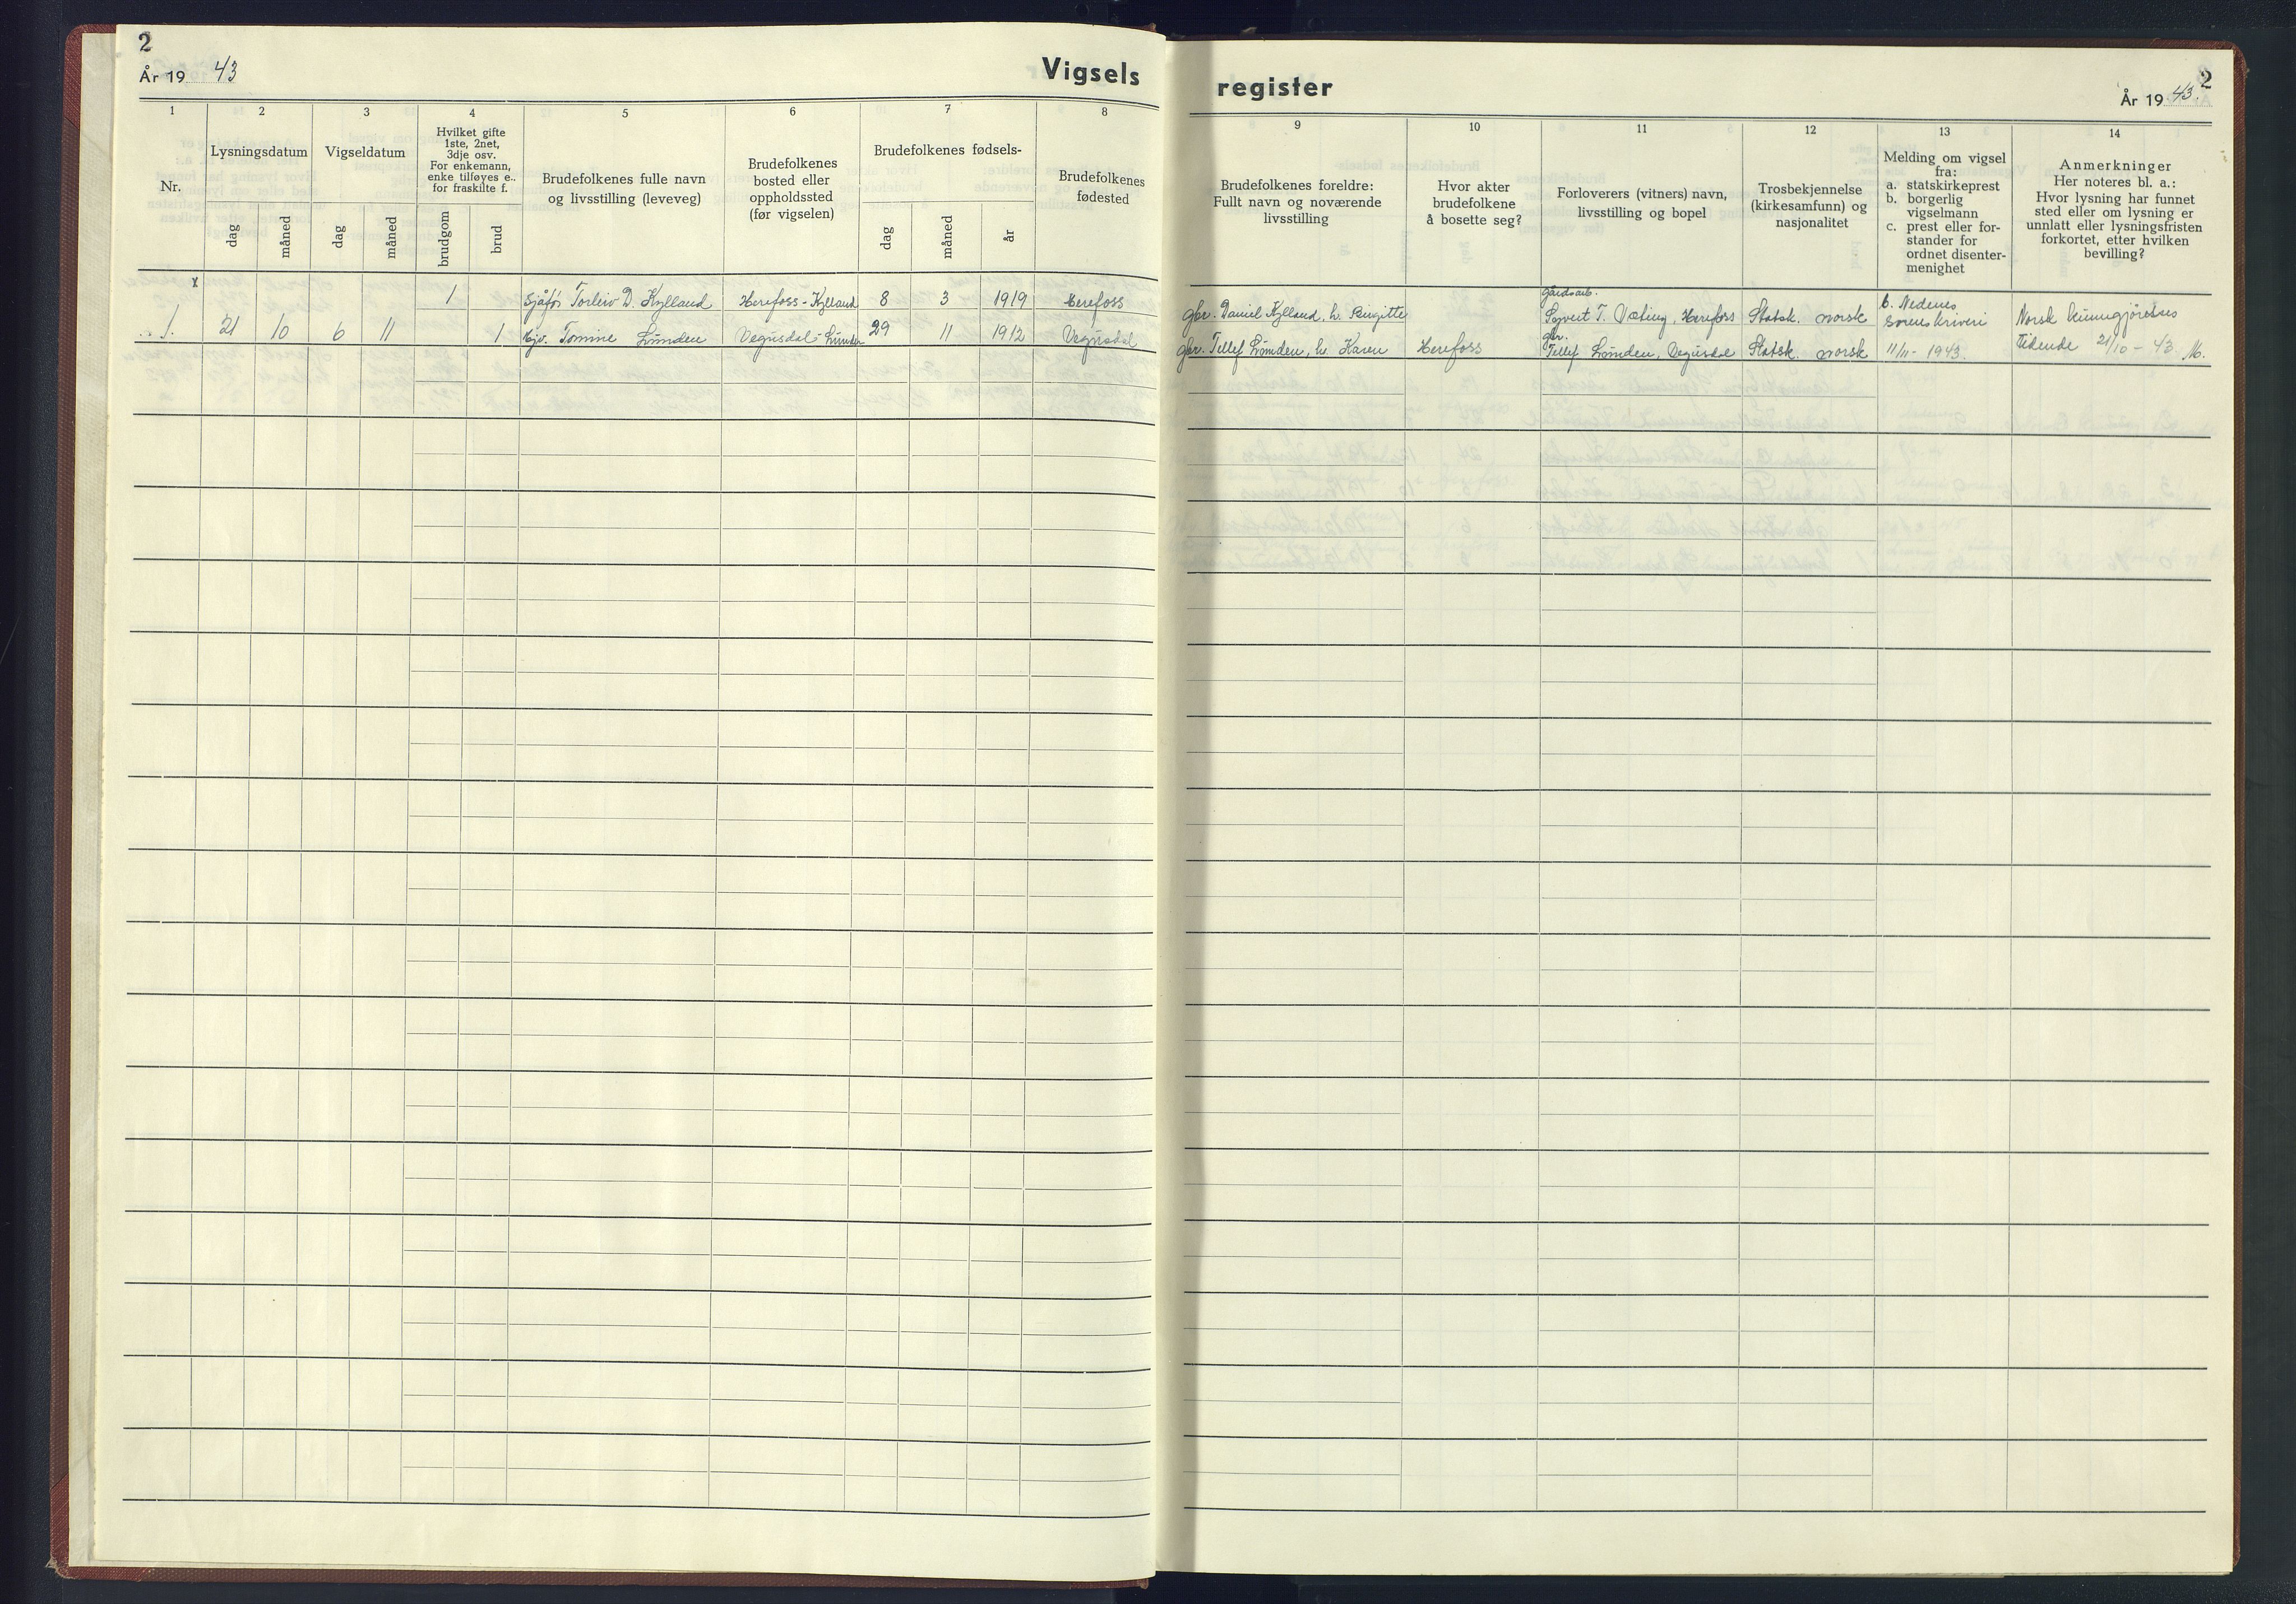 2
År 19 43
Vigsels
register
2
År 19 43.
1
2
3
4
5
6
7
8
9
10
11
12
13
14
Nr.
Lysningsdatum
dag
måned
Vigseldatum
dag
måned
Hvilket gifte
1ste, 2net,
3dje osv.
For enkemann,
enke tilføyes e..
for fraskilte f.
brudgom
brud
Brudefolkenes fulle navn
og livsstilling (leveveg)
Brudefolkenes
bosted eller
oppholdssted
(før vigselen)
Brudefolkenes fødsels-
dag
måned
år
Brudefolkenes
fødested
Brudefolkenes foreldre:
Fullt navn og noværende
livsstilling
Hvor akter
brudefolkene
å bosette seg?
Forloverers (vitners) navn,
livsstilling og bopel
Trosbekjennelse
(kirkesamfunn) og
nasjonalitet
Melding om vigsel
fra:
a. statskirkeprest
b. borgerlig
vigselmann
c. prest eller for-
stander for
ordnet disenter-
menighet
Anmerkninger
Her noteres bl. a.:
Hvor lysning har funnet
sted eller om lysning er
unnlatt eller lysningsfristen
forkortet, etter hvilken
bevilling?
x
1 Sjåfør Torleiv D. Kylland Herefoss - Kylland 8 3 1919 Herefoss
1. 21 10 6 11 1 Hjv. Tomine Lunden Vegusdal - Lunden 29 11 1912 Vegusdal
gårdsarb.
gbr. Daniel Kylland, h. Birgitte T. Herefoss Statsk. norsk b. Nedenes
sorenskriveri
Norsk kunngjørelses
gbr.
gbr. Tellef Lunden, h. Karen Herefoss Tellef Lunden, Vegusdal Statsk. norsk 11/11 - 1943.
tidende 21/10 - 43. M.